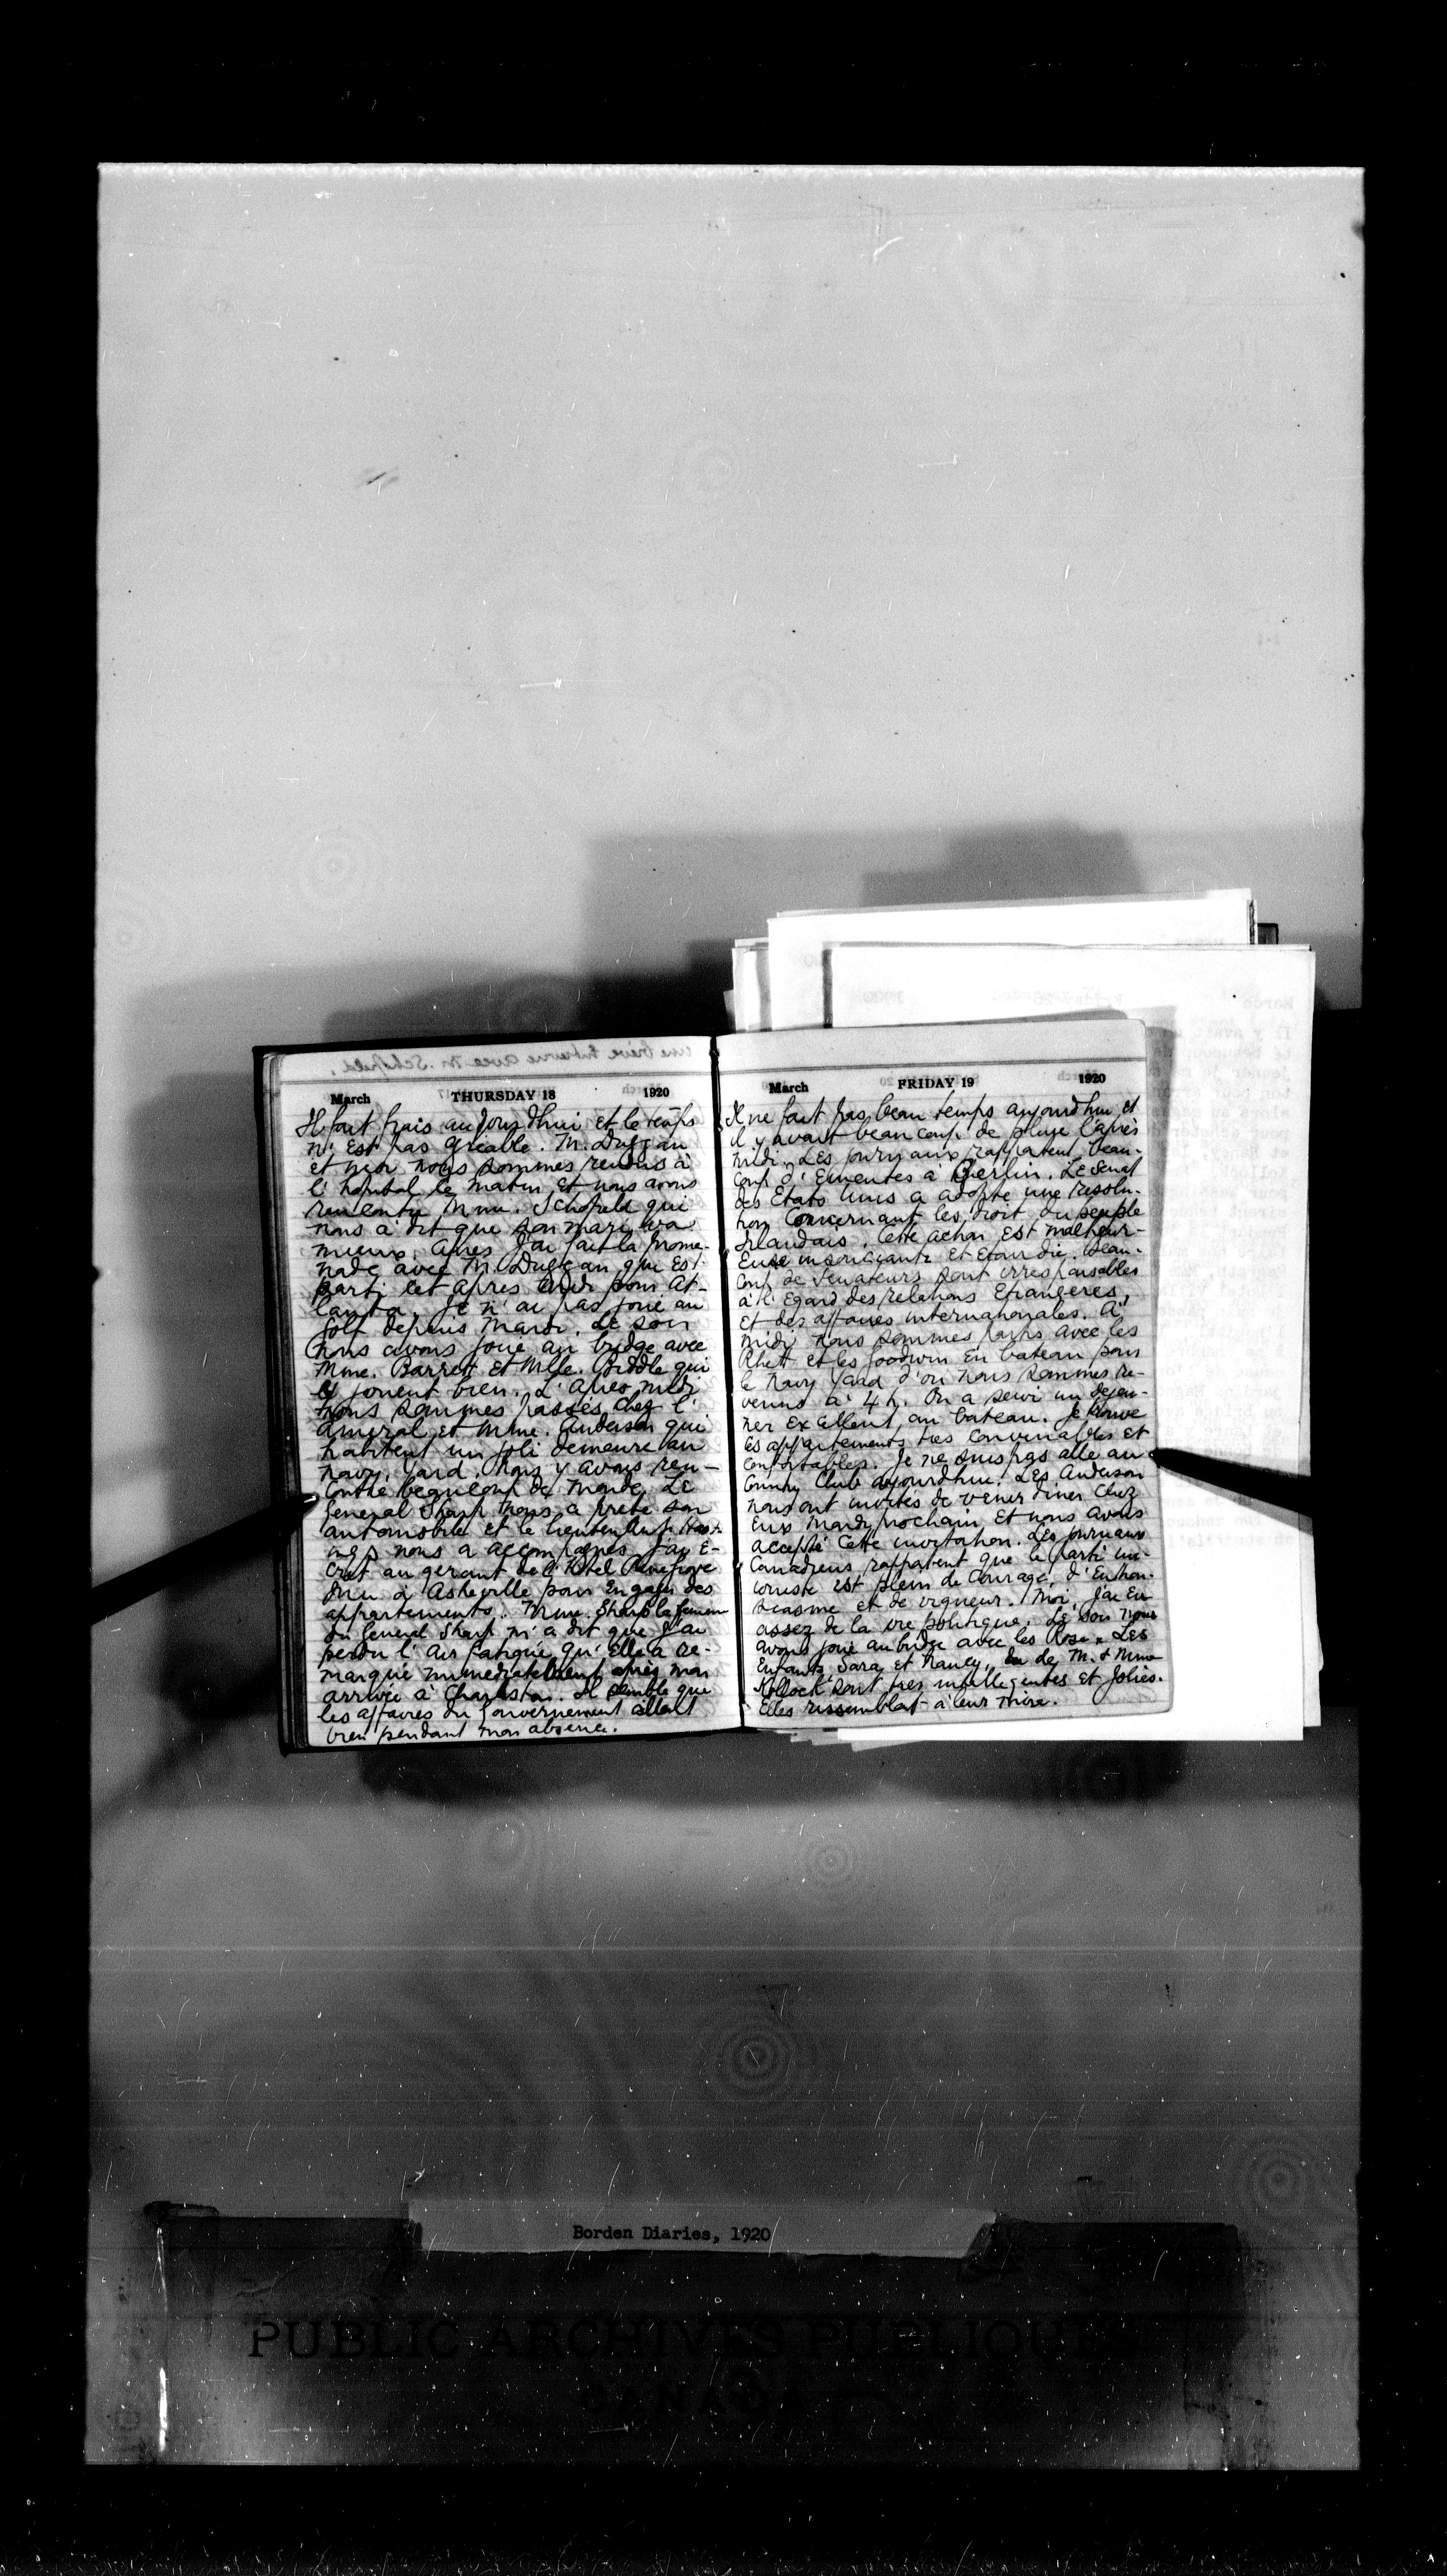 March THURSDAY 18 1920
Il fait frais aujourdhui et le temps
n'est pas gréable. M. Duggan
et moi nous sommes rendus à
l'hopital le matin et nous avons
rencontré Mme. Schofield qui
nous a dit que son mari va
mieux. Apres j'ai fait la prome-
nade avec M. Duggan qui est
parti cet apres midi pour At-
lanta. Je n'ai pas joué au
golf depuis Mardi. Le soir
nous avons joué au bridge avec
Mme. Barrett et Mlle. Biddle qui
jouent bien. L'apres midi
nous sommes passés chez l'
Amiral et Mme. Anderson qui
habitent un joli demeure au
Navy Yard. Nous y avons ren-
contré beaucoup de monde. Le
General Sharp nous a preté son
automobile et le lieutenant Hast-
ings nous a accompagnés. J'ai é-
crit au gerant de l'Hotel Grove
Inn à Asheville pour engager des
appartements. Mme. Sharp la femme
du General Sharp m'a dit que j'ai
perdu l'air fatigué qu'elle a re-
marqué immediatement après mon
arrivée à Charleston. Il semble que
les affaires du Gouvernement allait
bien pendant mon absence.
March FRIDAY 19 1920
Il ne fait pas beau temps aujourdhui et
il y avait beaucoup de pluie l'après
midi. Les journaux rapportent beau-
coup d'Emeutes à Berlin. Le Senat
des Etats Unis a adopté une resolu-
tion concernant les droit du peuple
Irlandais. Cette action est malheur-
euse insouciante et etourdie. Beau-
coup de Senateurs sont irresponsables
à l'egard des relations Etrangeres,
et des affaires internationales. A
midi nous sommes partis avec les
Rhett et les Goodwin en bateau pour
le Navy Yard d'ou nous sommes re-
venus à 4 h. On a servi un dejeu-
ner excellent au bateau. Je trouve
les appartements tres convenables et
confortables. Je ne suis pas allé au
Country Club aujourdhui. Les Anderson
nous ont invités de venir diner chez
eux Mardi prochain et nous avons
accepté cette invitation. Les journaux
Canadiens rapportent que le parti un-
ioniste est plein de courage, d'enthou-
siasme et de vigueur. Moi, j'ai eu
assez de la vie politique. Le soir nous
avons joué au bridge avec les Rose. Les
enfants, Sara et Nancy, de M. & Mme
Kollock sont tres intelligentes et jolies.
Elles ressemblent à leur mère.
Borden Diaries, 1920
PUBLIC ARCHIVES PUBLIQUES
CANADA